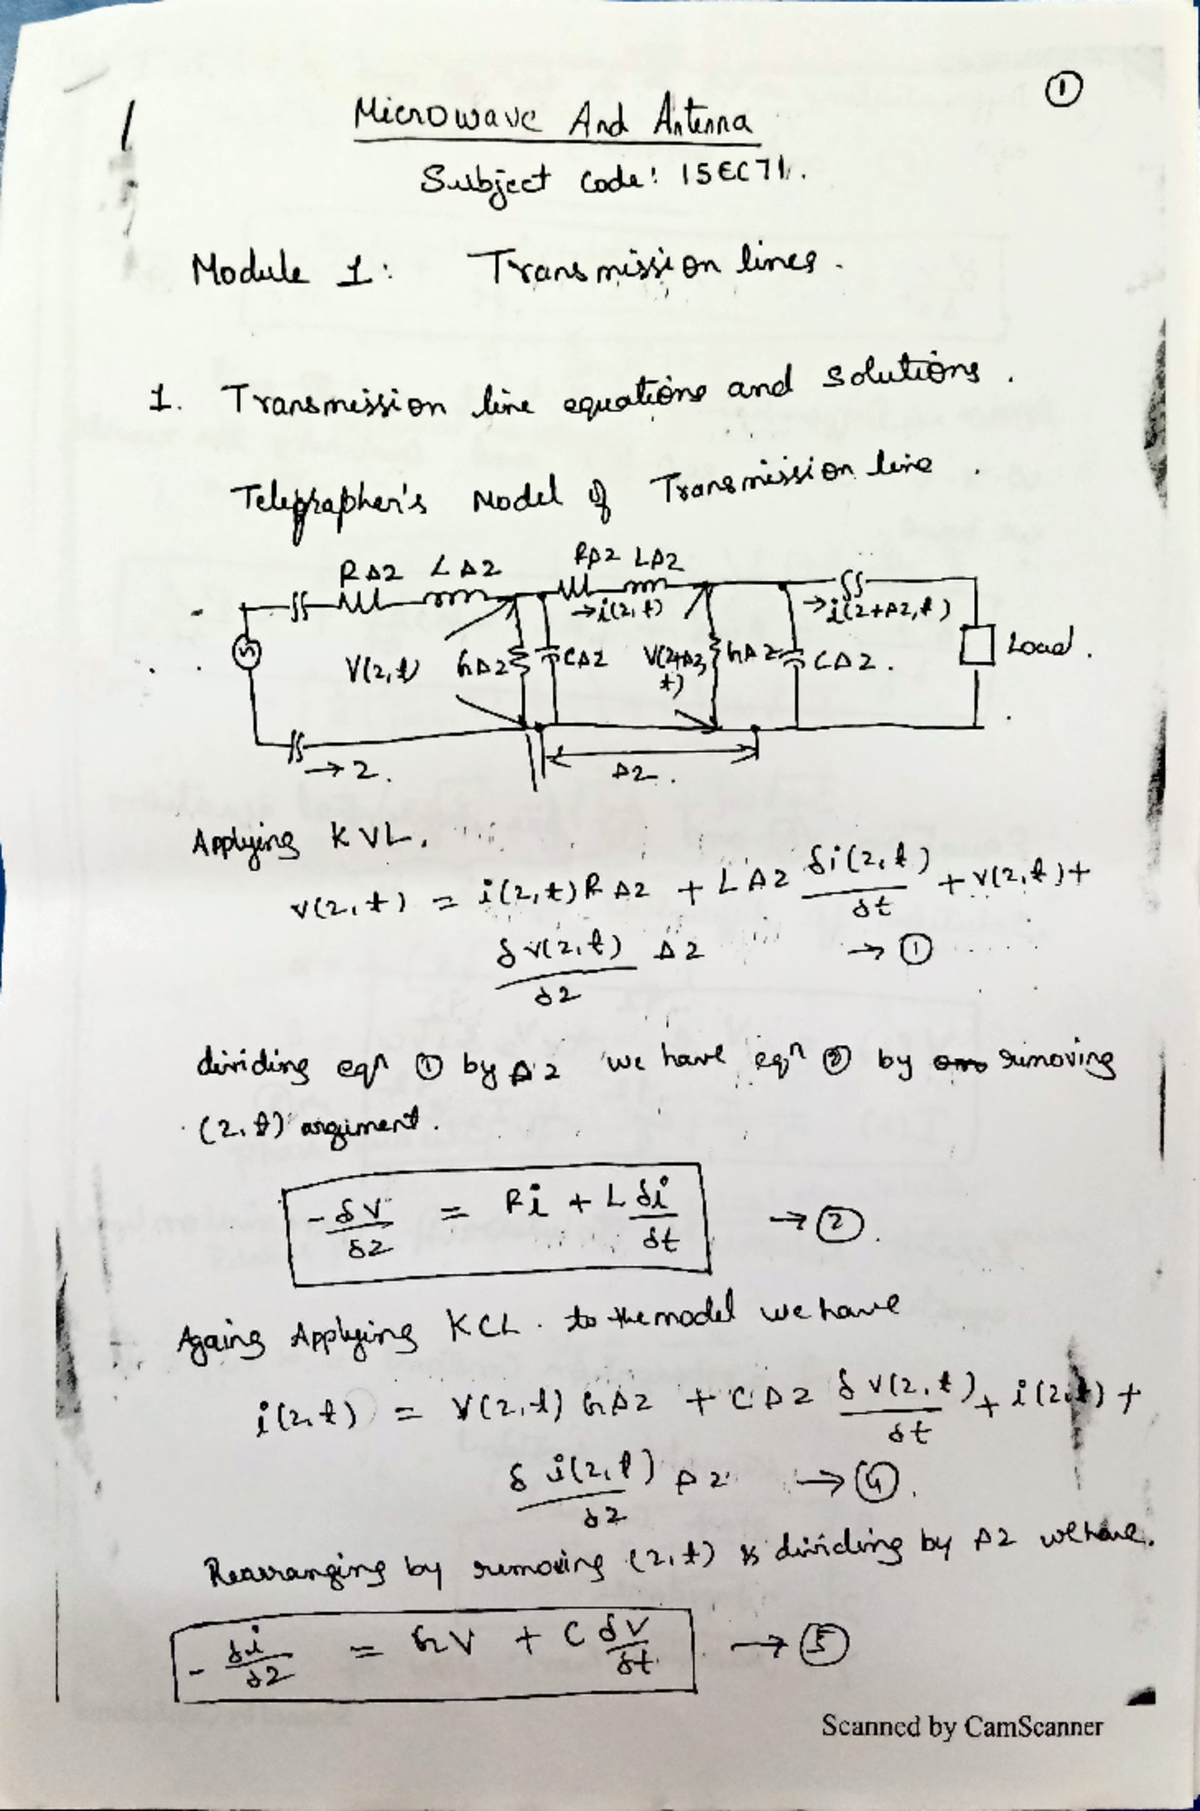 ①
Microwave And Antenna
Subject Code: 15EC71.
Module 1: Transmission lines.
1. Transmission line equations and solutions.
Telegrapher's Model of Transmission line.
RΔz LΔz RΔz LΔz
→i(z,t) →i(z+Δz,t)
V(z,t) GΔz CΔz V(z+Δz, t) GΔz CΔz. Load.
→z. Δz.
Applying KVL.
v(z,t) = i(z,t)RΔz + LΔz δi(z,t)/δt + v(z,t)+
δv(z,t)/δz Δz → ①
dividing eqn ① by Δz we have eqn ② by removing
(z,t) argiment.
-δv/δz = Ri + L δi/δt → ②.
Agains Applying KCL. to the model we have
i(z,t) = V(z,t) GΔz + CΔz δv(z,t)/δt + i(z,t) +
δi(z,t)/δz Δz → ④.
Rearranging by removing (z,t) & dividing by Δz we have.
-δi/δz = GV + C δV/δt → ⑤
Scanned by CamScanner